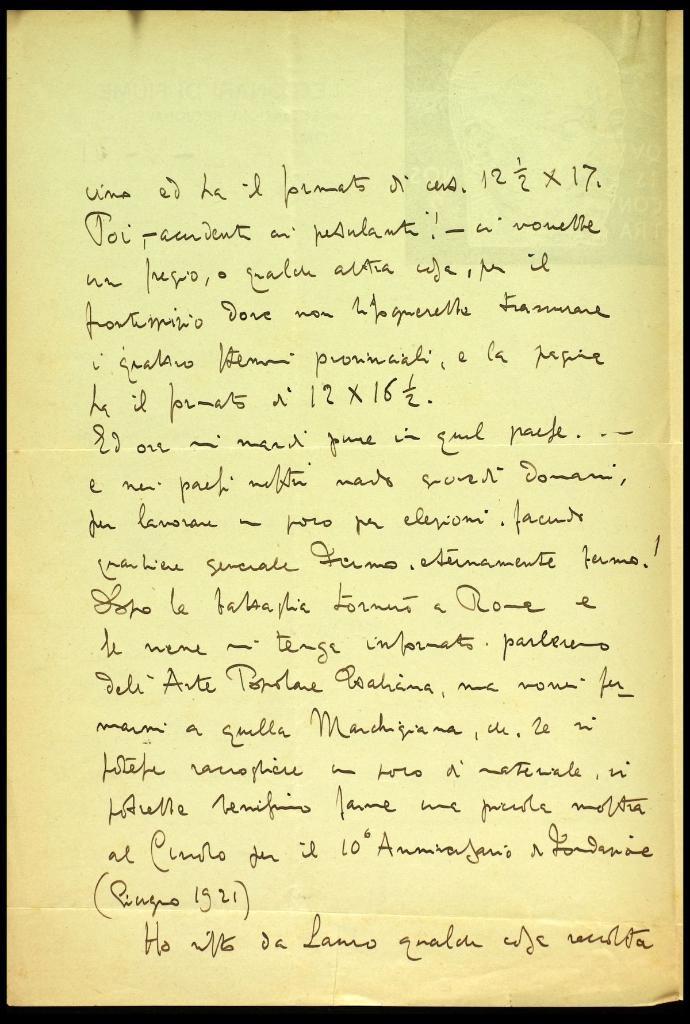 cino ed ha il formato di cm. 12 ½ X 17.
Poi, – accidenti ai petulanti! – ci vorrebbe
un fregio, o qualche altra cosa, per il
frontespizio dove non bisognerebbe trascurare
i quattro stemmi provinciali, e la pagina
ha il formato di 12 X 16 ½.
Ed ora mi mandi pure in quel paese. . –
e nei paesi nostri vado giovedì domani,
per lavorare un poco per elezioni. facendo
quartiere generale Fermo. eternamente fermo.!
Dopo la battaglia tornerò a Roma e
se viene mi tenga informato. parleremo
dell'Arte Popolare Italiana, ma vorrei fer_
marmi a quella Marchigiana, chè. se si
potesse raccogliere un poco di materiale, si
potrebbe benissimo farne una piccola mostra
al Circolo per il 10° Anniversario di Fondazione
(Giugno 1921)
Ho visto da Lauro qualche cosa raccolta